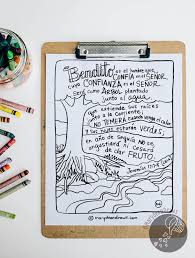 Bendito es el hombre que
CONFÍA en el SEÑOR,
cuya CONFIANZA es el SEÑOR.
Será como Árbol plantado
junto al agua,
que extiende sus raíces
a la corriente;
NO TEMERÁ cuando venga el calor
y sus hojas estarán verdes;
en año de sequía no se
angustiará ni cesará
de dar FRUTO.
Jeremías 17:7-8
©marydeandraws.com